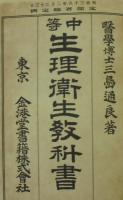 醫學博士三島通良著
中等
生理衛生教科書
東京 金港堂書籍株式會社